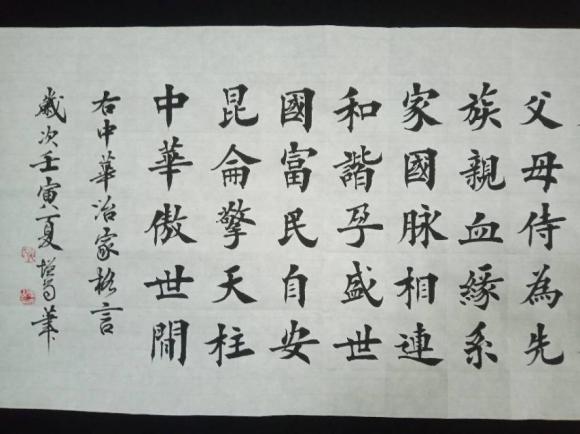 父母侍為先
族親血緣系
家國脉相連
和諧孕盛世
國富民自安
昆侖擎天柱
中華傲世間
右中華治家格言
歲次壬寅夏增芻筆